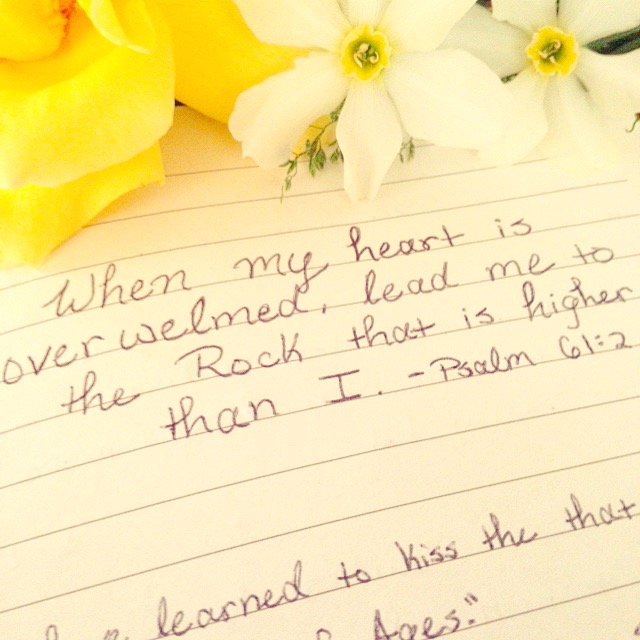 When my heart is
overwelmed, lead me to
the Rock that is higher
than I. - Psalm 61:2
learned to kiss the that
Ages."